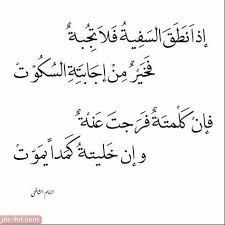 إذا نَطَقَ السَفِيةُ فَلاَ تُجِبةٌ
فَخَيْرٌ مِنْ إجَابَتِةِ السُكُوتْ
فإنْ كَلَمتَةٌ فَرَجتَ عَنْةٌ
وإن خَليتَةٌ كَمَداً يَموَتْ
الامام الشافعي
pic-hd.com